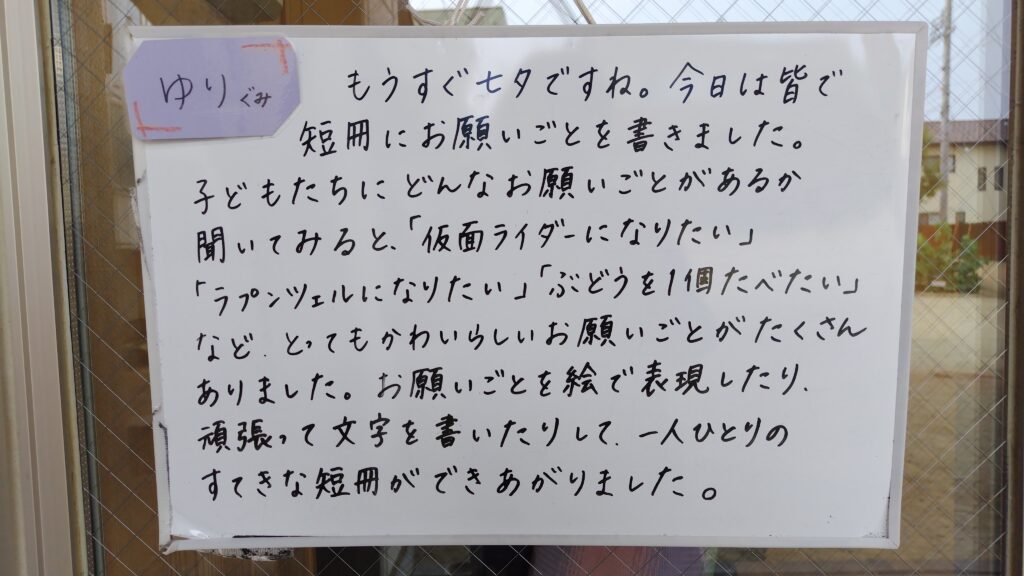 ゆりぐみ
もうすぐ七夕ですね。今日は皆で
短冊にお願いごとを書きました。
子どもたちにどんなお願いごとがあるか
聞いてみると、「仮面ライダーになりたい」
「ラプンツェルになりたい」「ぶどうを1個たべたい」
など、とってもかわいらしいお願いごとがたくさん
ありました。お願いごとを絵で表現したり、
頑張って文字を書いたりして、一人ひとりの
すてきな短冊ができあがりました。